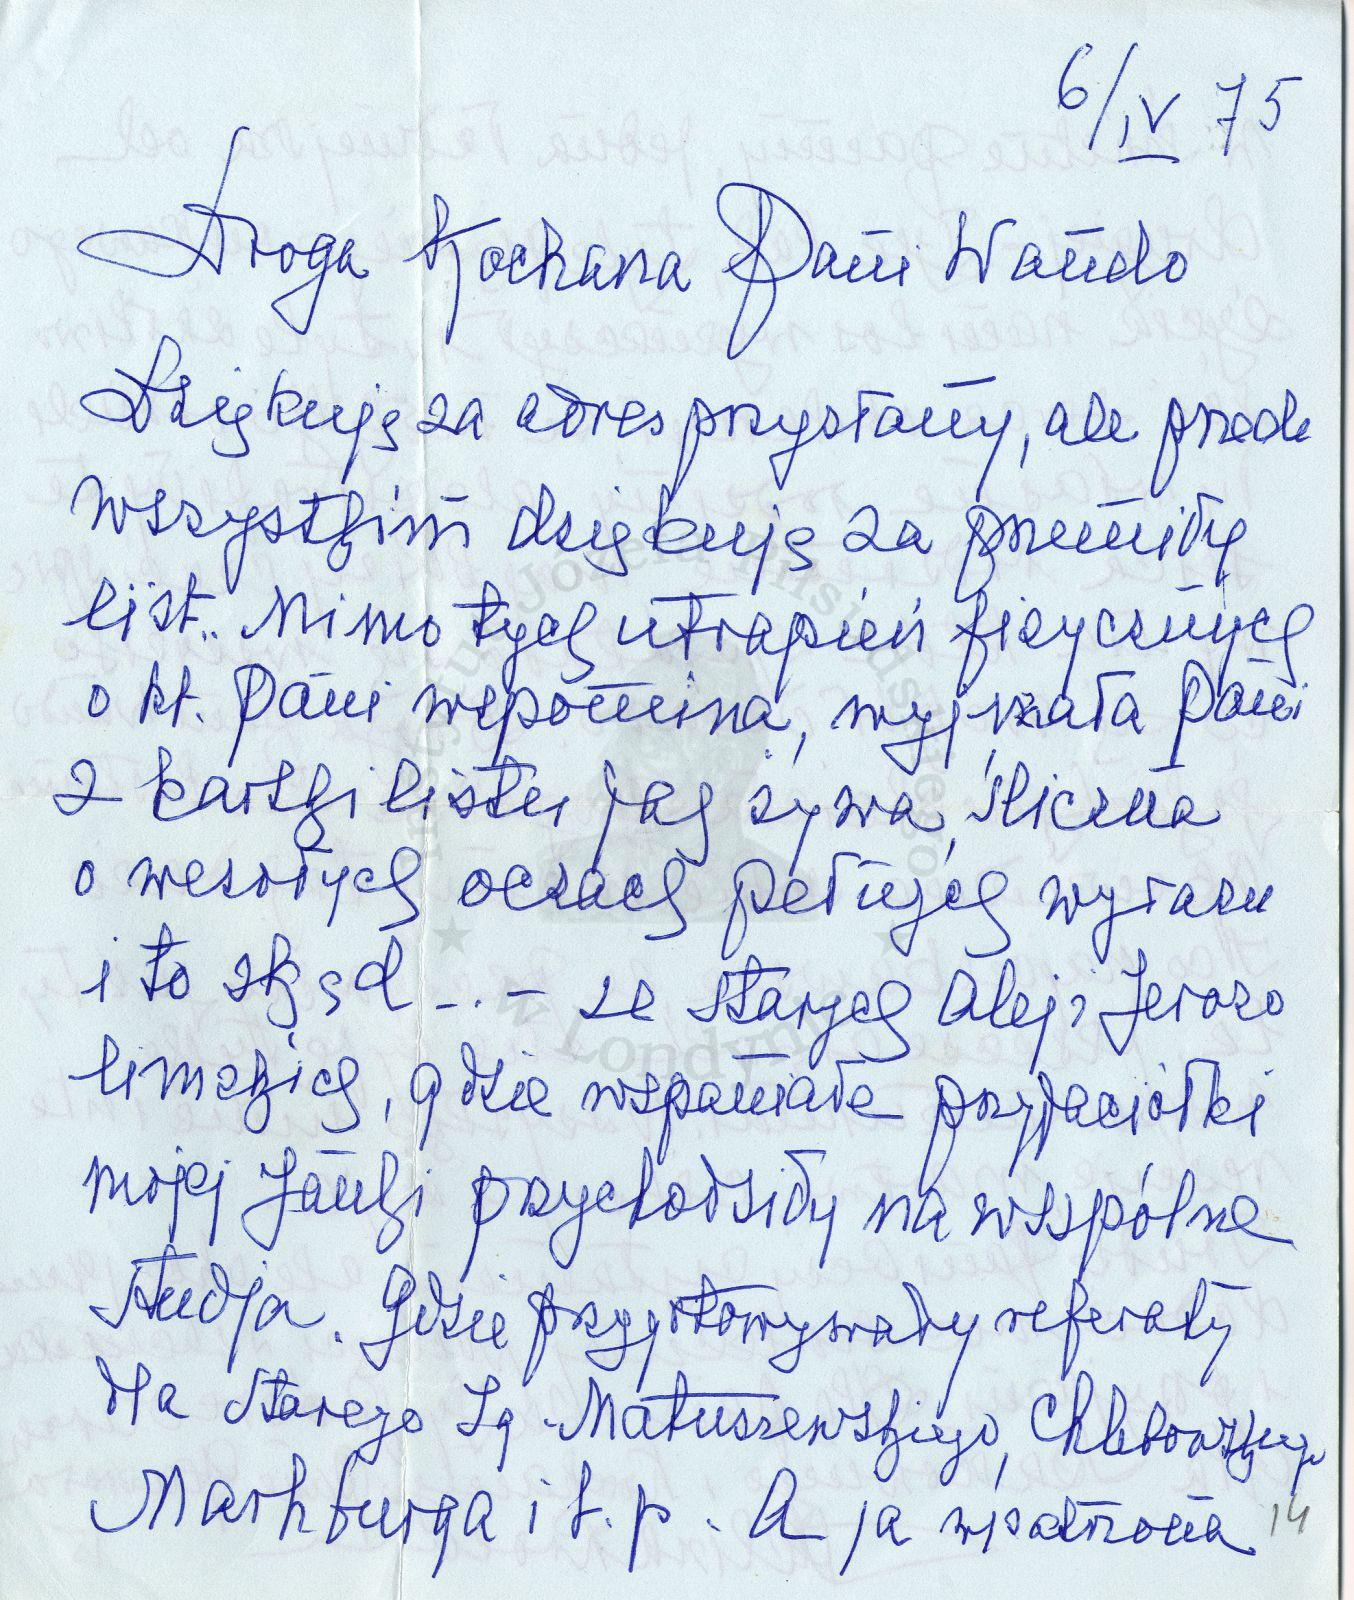 6/IV 75
Droga Kochana Pani Wando
Dziękuję za adres przysłany, ale przede
wszystkim dziękuję za przemiły
list.. Mimo tych utrapień fizycznych
o kt. Pani wspomina, wyjrzała Pani
z kartki listu jak żywa, śliczna
o wesołych oczach pełnych wyrazu
i to skąd -.- ze starych Alej; Jerozo
limskich, gdzie wspaniałe przyjaciółki
mojej Janki przychodziły na wspólne
studja. Gdzie przygotowywały referaty
dla starego Ig. Matuszewskiego, Chlebowskiego
Marhburga i t. p. A ja wpatrzona
14
Instytut Józefa Piłsudskiego
w Londynie